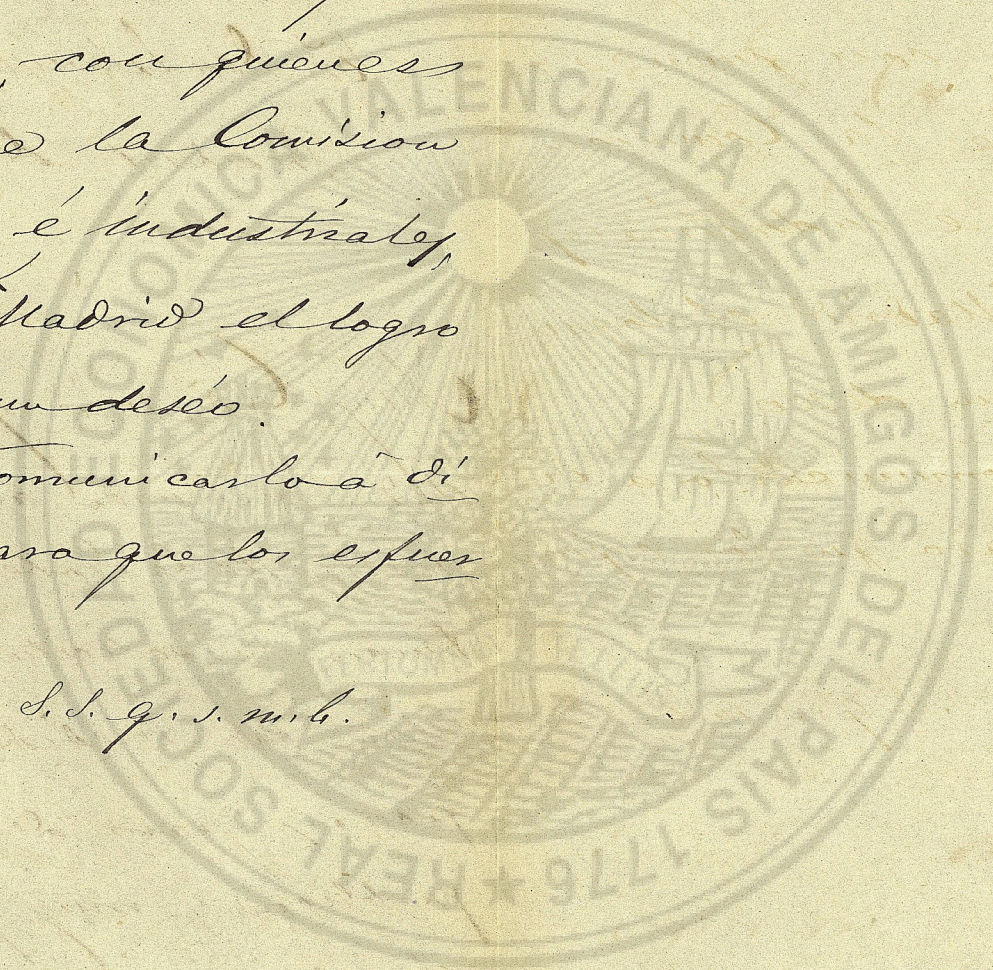 con quiénes
la Comision
é industriales,
Madrid el logro
deséo.
comunicarlo á di
para que los esfuer
S. S. q. s. m. b.
REAL SOCIEDAD ECONOMICA VALENCIANA DE AMIGOS DEL PAIS 1776 ★